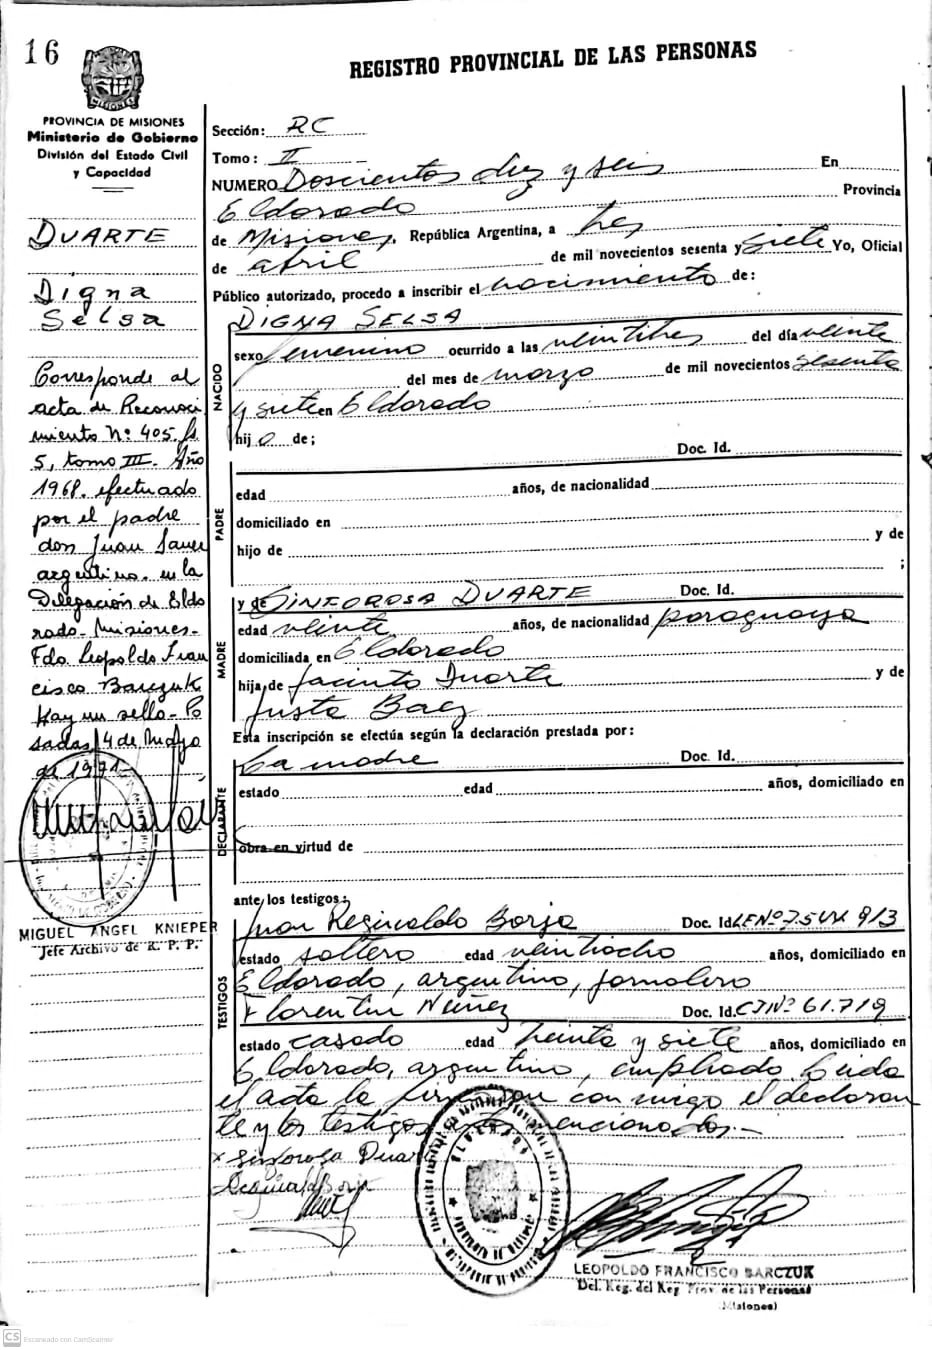 16
REGISTRO PROVINCIAL DE LAS PERSONAS
MISIONES
PROVINCIA DE MISIONES
Ministerio de Gobierno
División del Estado Civil
y Capacidad
DUARTE
Digna
Selsa
Corresponde al
acta de Reconoci
miento Nº 405. fs
5, tomo III. Año
1968. efectuado
por el padre
don Juan
argentino. en la
Delegación de Eldo
rado - Misiones -
Fdo. Leopoldo Fran
cisco Barczuk
Hay un sello - Po
sadas, 14 de Mayo
de 1971 -
MIGUEL ANGEL KNIEPER
Jefe Archivo de R. P. P.
Sección: RC
Tomo: II
NUMERO Doscientos diez y seis En
Eldorado Provincia
de Misiones, República Argentina, a tres
de abril de mil novecientos sesenta y siete Yo, Oficial
Público autorizado, procedo a inscribir el nacimiento de:
NACIDO
DIGNA SELSA
sexo femenino ocurrido a las veintitres del día veinte
del mes de marzo de mil novecientos sesenta
y siete en Eldorado
hij a de;
PADRE
Doc. Id.
edad años, de nacionalidad
domiciliado en
hijo de y de
;
MADRE
y de SINFOROSA DUARTE Doc. Id.
edad veinte años, de nacionalidad paraguaya
domiciliada en Eldorado
hija de Jacinto Duarte y de
Justa Baez
Esta inscripción se efectúa según la declaración prestada por:
DECLARANTE
La madre Doc. Id.
estado edad años, domiciliado en
obra en virtud de
ante los testigos:
TESTIGOS
Juan Reginaldo Borja Doc. Id. LE Nº 913
estado soltero edad veintiocho años, domiciliado en
Eldorado, argentino, jornalero
Florentin Núñez Doc. Id. CI Nº 61.719
estado casado edad treinta y siete años, domiciliado en
Eldorado, argentino, empleado. Leida
el acta la firman con migo el declaran
te y los testigos antes mencionados.-
x Sinforosa Duar
Reginaldo Borja
ELDORADO
LEOPOLDO FRANCISCO BARCZUK
Del. Reg. del Reg Prov. de las Personas
(Misiones)
CS Escaneado con CamScanner